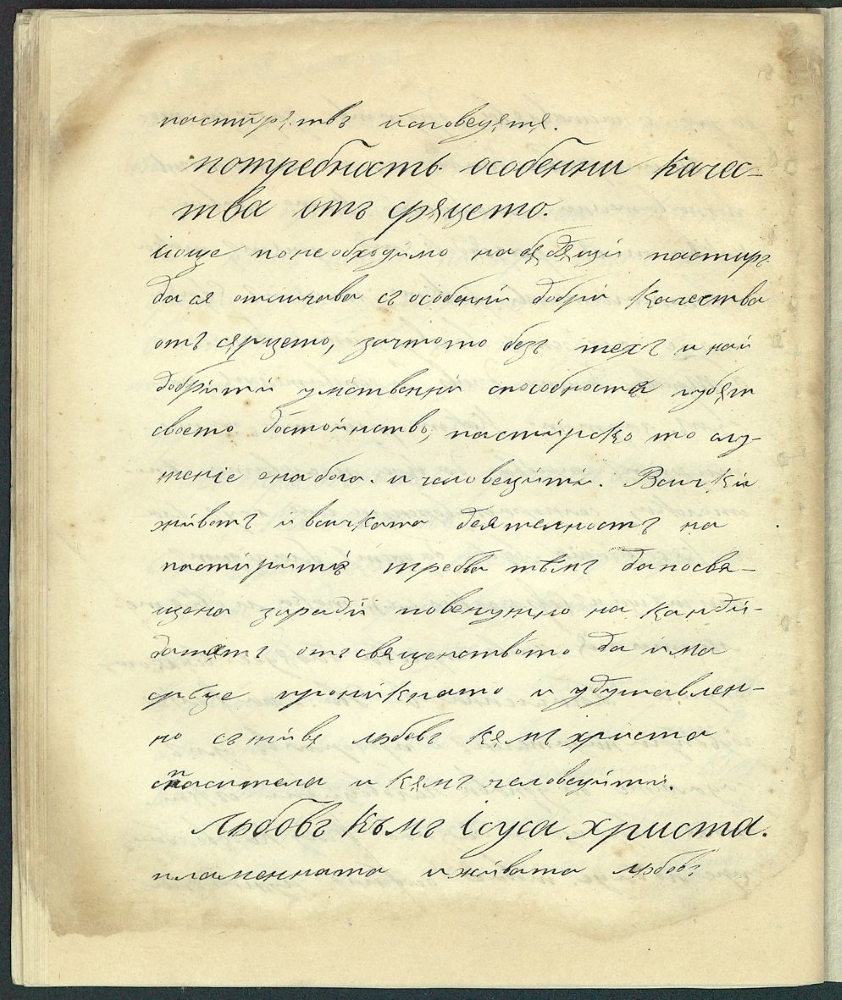 пастирѧтъ исповедѧтѧ.
потребность особенни качес-
тва отъ срѧцето.
іоще понеобходимо на бѫдѫщій пастирь
да ся отличава съ особений добри качества
отъ сѧрцето, зачтото безъ техъ и най
добритй умственни способности губѧт
своето достойнство, пастирско то слу-
женіе богу и человецйтй. Всичкій
животъ и всичката деятелность на
пастирйтѣ требва тѣмъ да посвя-
щена заради на канди-
датѧтъ отъ священството да има
срьце проникнато и удушавлен-
но съ живѧ любовь кѧмъ христа
спасителя и кѧмъ человецйтй.
Любовь къмъ Ісуса христа.
пламенната и живата любовь